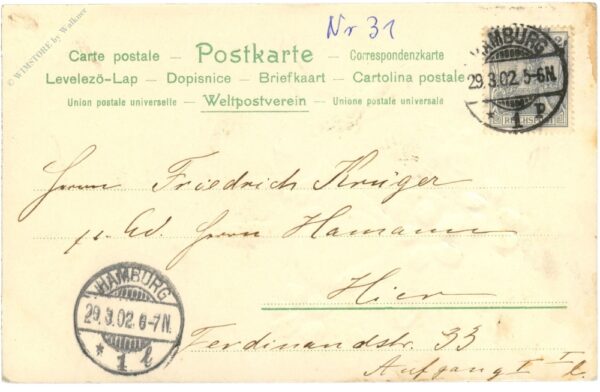 © WIMSTORE by Walkner
Nr 31
Carte postale — Postkarte — Correspondenzkarte
Levelező-Lap — Dopisnice — Briefkaart — Cartolina postale
Union postale universelle — Weltpostverein — Unione postale universale
HAMBURG
29.3.02. 5-6N.
* 1 P.
REICHSPOST
Herrn Friedrich Krüger
p. Ad. Herrn Hamann
Hier
Ferdinandstr. 33
Aufgang I I l.
HAMBURG
29.3.02. 6-7N.
* 1 l